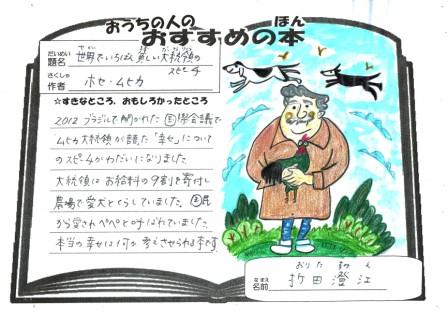 おうちの人の
おすすめの本
だいめい
題名
世界でいちばん貧しい大統領の
スピーチ
さくしゃ
作者
ホセ・ムヒカ
☆すきなところ、おもしろかったところ
2012 ブラジルで開かれた国際会議で
ムヒカ大統領が語った「幸せ」について
のスピーチがわだいになりました
大統領はお給料の9割を寄付し
農場で愛犬とくらしていました。国民
から愛されペペと呼ばれていました。
本当の幸せは何か考えさせられる本です。
なまえ
名前
折田澄江